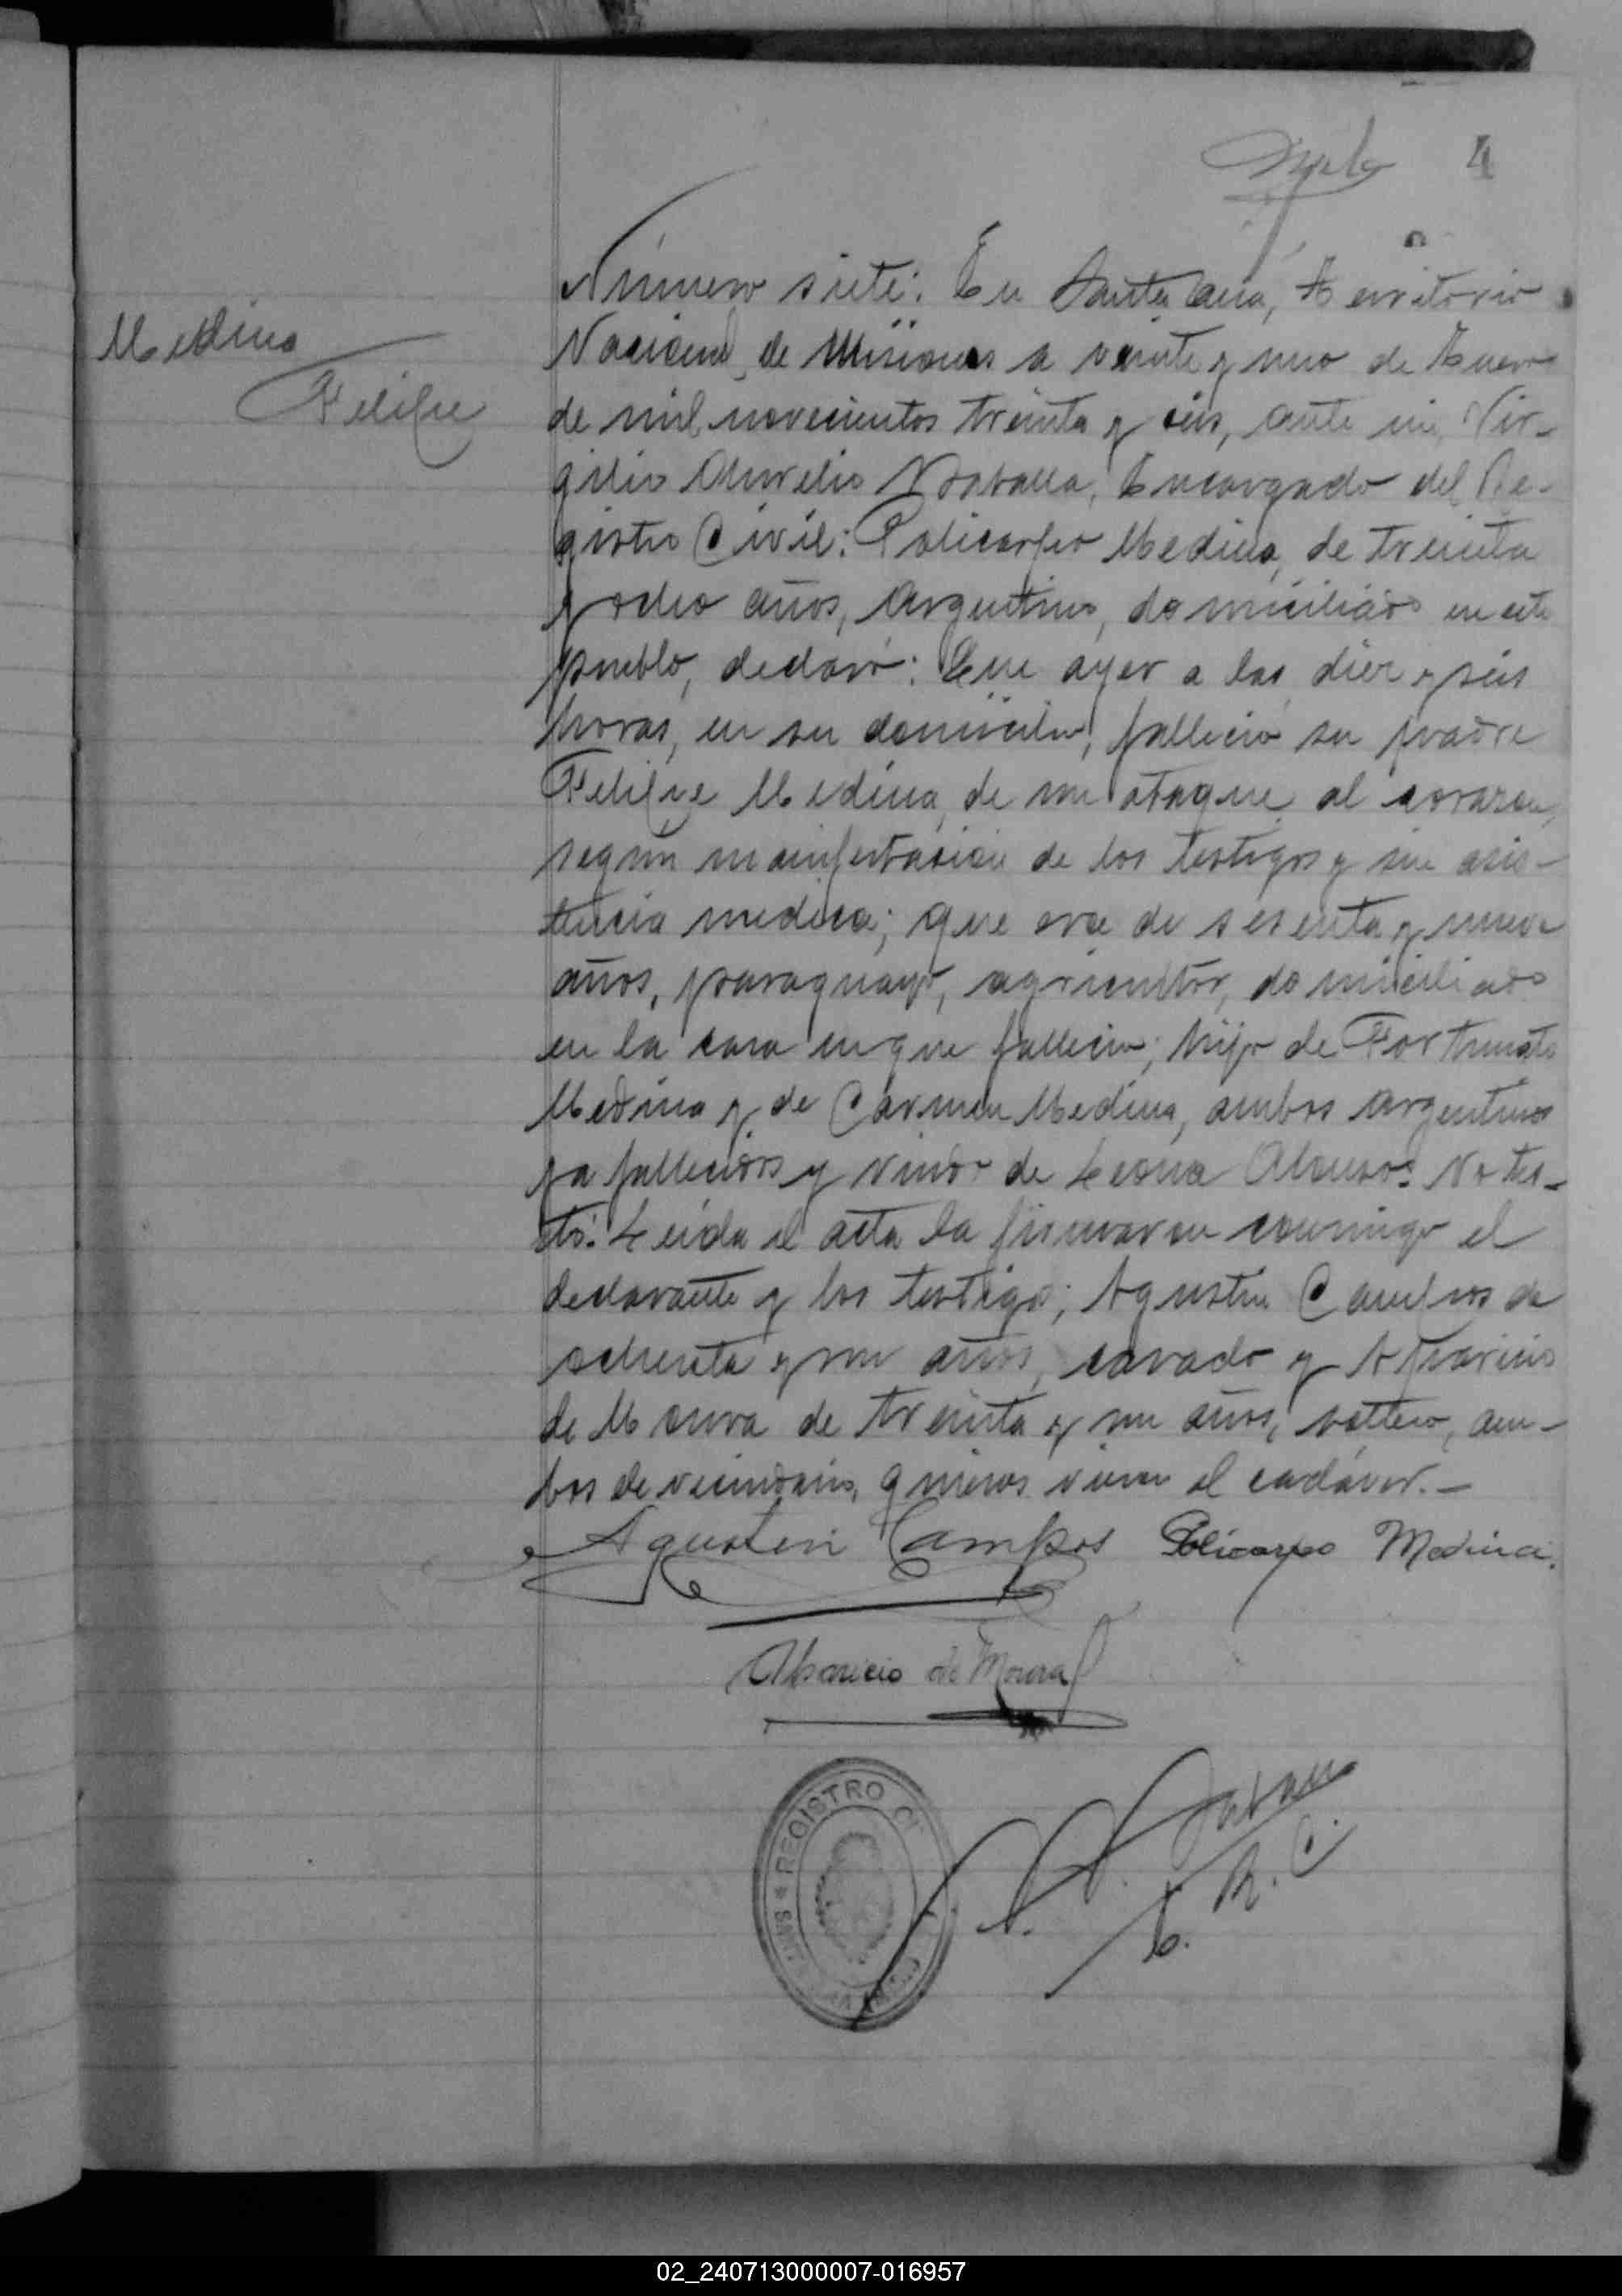 4
Medina
Felipe
Número siete: En Santa Ana, Territorio
Nacional de Misiones a veinte y uno de Enero
de mil novecientos treinta y seis, ante mi, Vir-
gilio Aurelio Encargado del Re-
gistro Civil: Policarpo Medina, de treinta
y ocho años, Argentino, domiciliado en este
pueblo, declaró: Que ayer a las diez y seis
horas, en su domicilio, falleció su padre
Felipe Medina, de un ataque al corazon,
según manifestación de los testigos y sin asis-
tencia medica; que era de sesenta y nueve
años, paraguayo, agricultor, domiciliado
en la casa en que falleció; hijo de Fortunato
Medina y de Carmen Medina, ambos argentinos
ya fallecidos y viudo de Leona Alonso. No tes-
tó. Leida el acta la firmaron conmigo el
declarante y los testigos; Agustin Campos de
ochenta y un años, casado y Aparicio
de Moura de treinta y un años, soltero, am-
bos de vecindario, quienes vieron el cadáver.-
Agustin Campos Policarpo Medina.
Aparicio de Moura
REGISTRO CI
E. R. C.
02_240713000007-016957